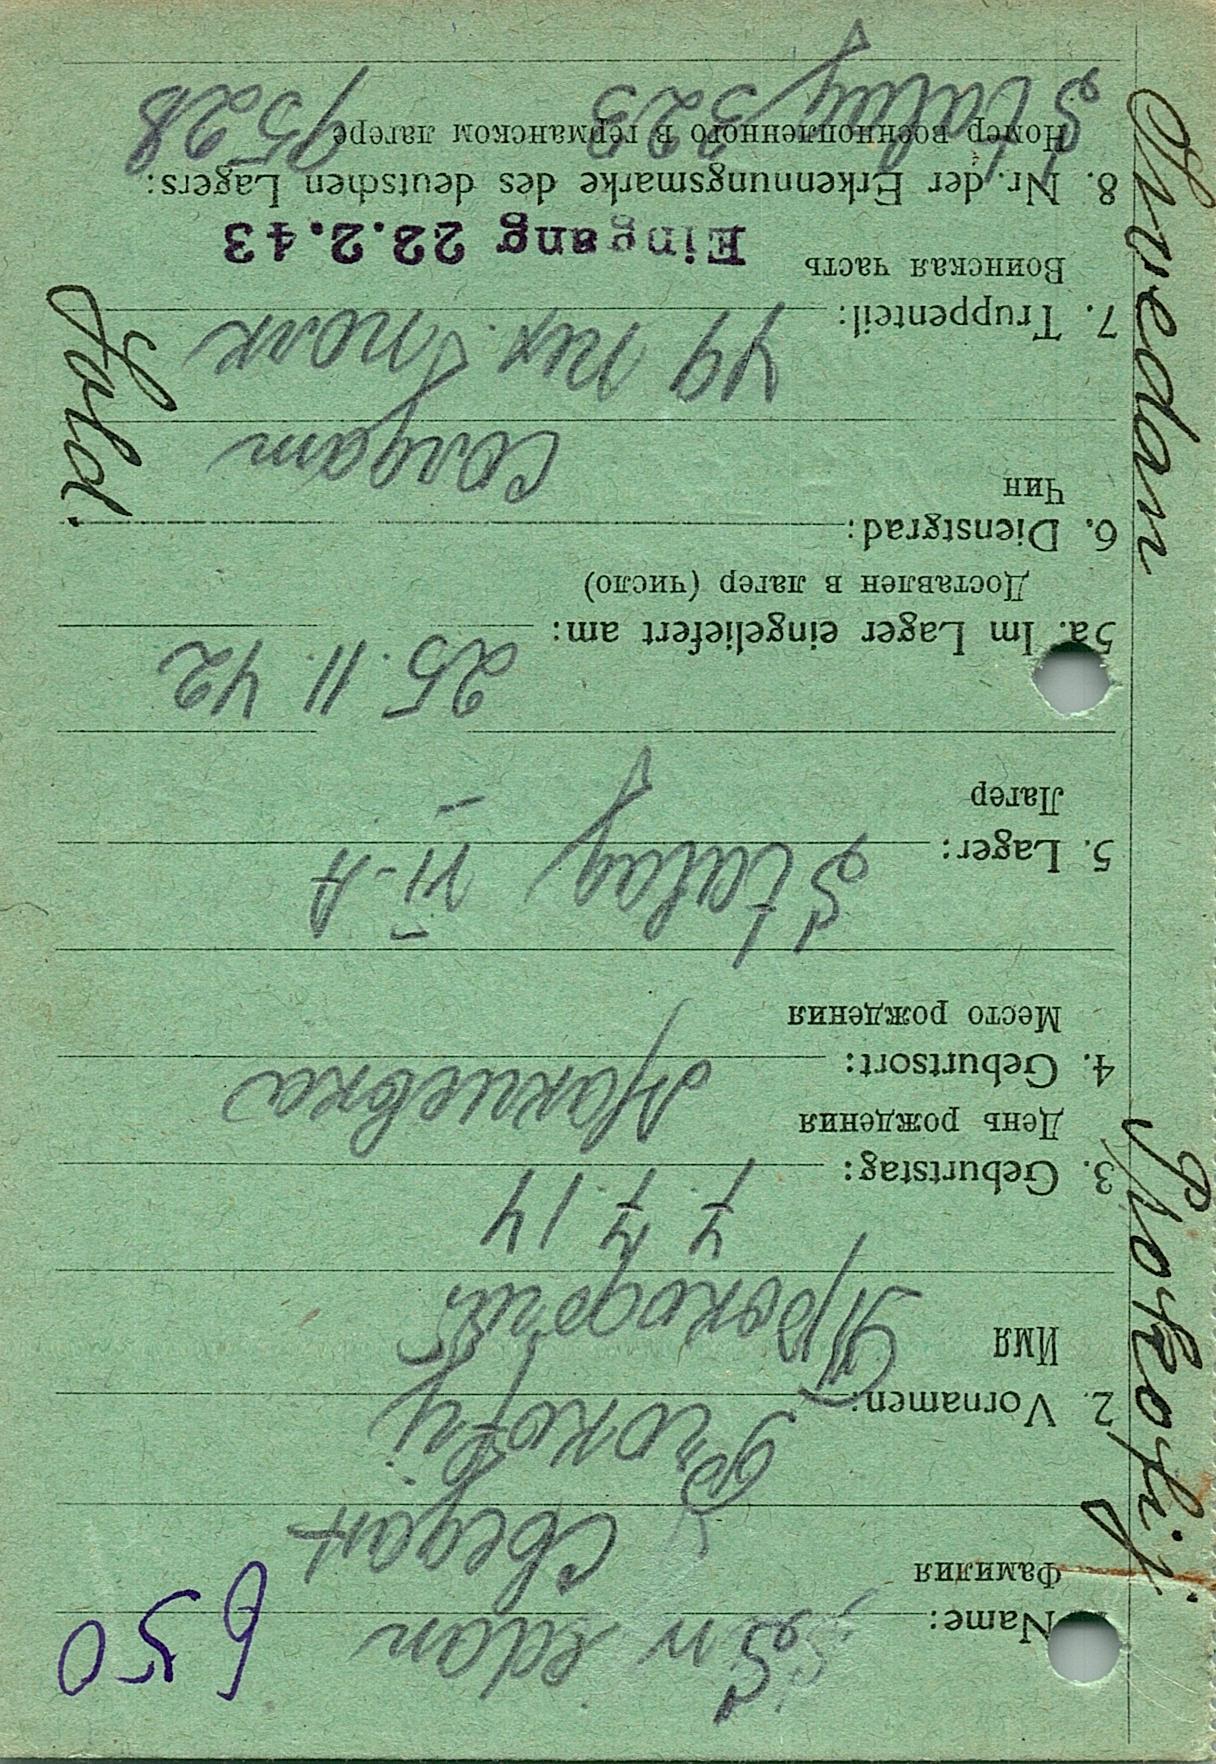 650
Name:
Swedan
Фамилия
Сведан
2. Vornamen:
Prokofij
Имя
Прокофий
3. Geburtstag: 7. 7. 14
День рождения
4. Geburtsort: Макиевка
Место рождения
5. Lager: Stalag VI-A
Лагер
5a. Im Lager eingeliefert am: 25. 11. 42
Доставлен в лагер (число)
6. Dienstgrad: Sold.
Чин солдат
7. Truppenteil: 49 пех. полк
Воинская часть Eingang 22.2.43
8. Nr. der Erkennungsmarke des deutschen Lagers:
Номер военнопленного в германском лагере 9528
Stalag 323
Prokofij Swedan